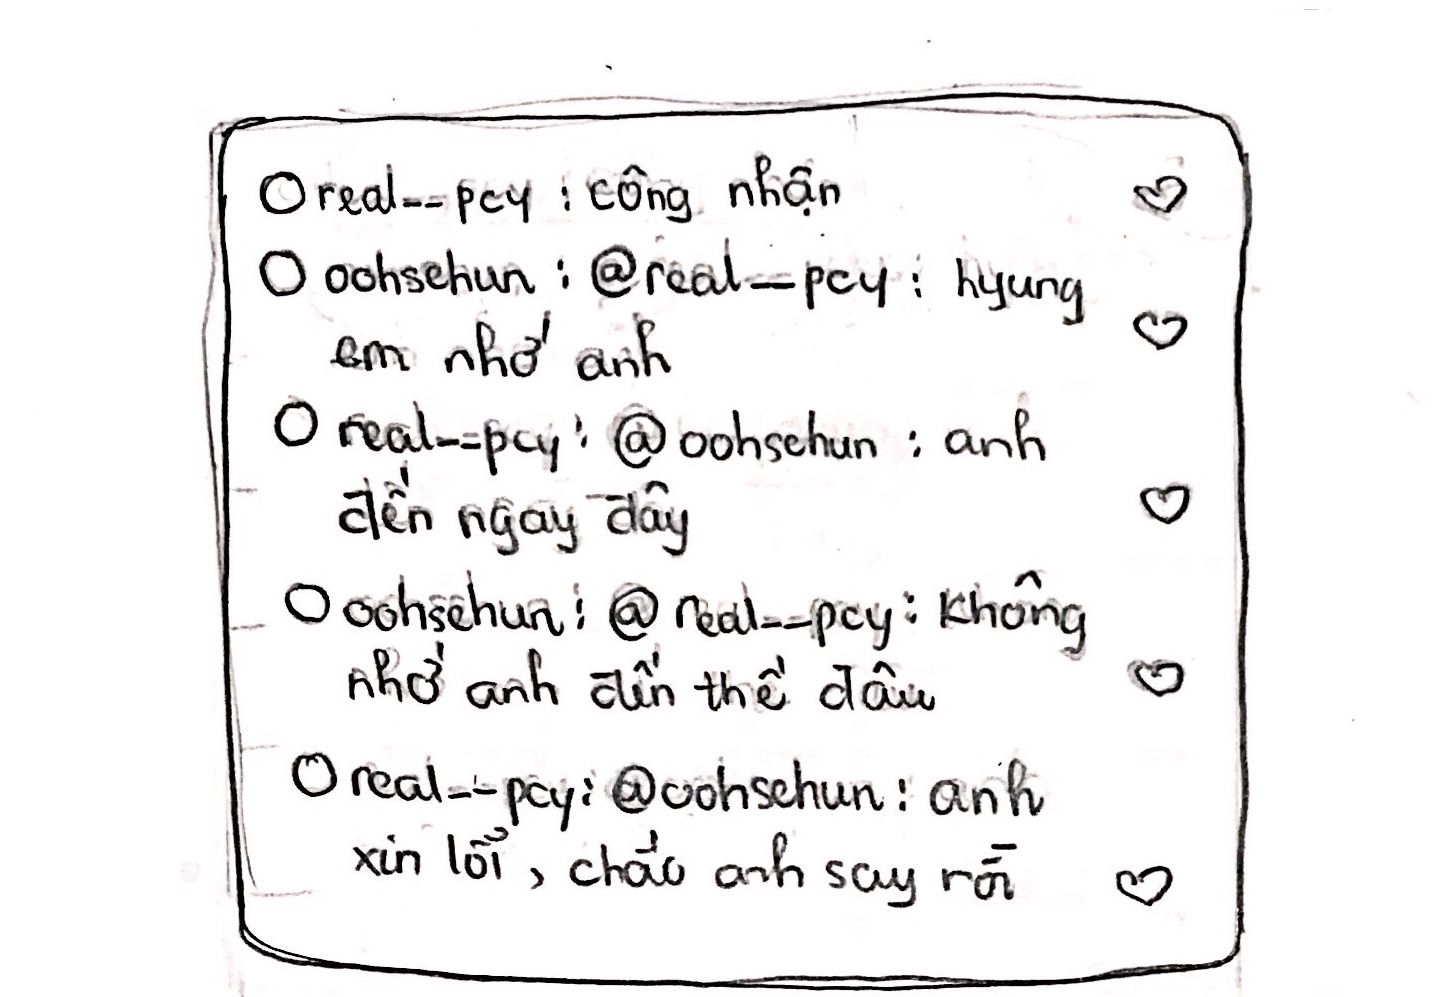 real__pcy : công nhận
oohsehun : @real__pcy : hyung
em nhớ anh
real__pcy : @oohsehun : anh
đến ngay đây
oohsehun : @real__pcy : Không
nhớ anh đến thế đâu
real__pcy : @oohsehun : anh
xin lỗi, chắc anh say rồi